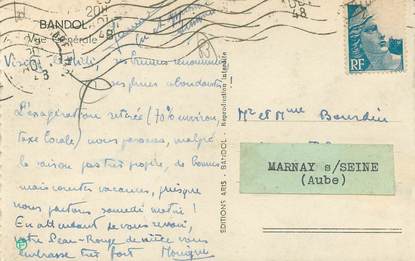 BANDOL
Vue Générale
20
48
48
RF
ses brunes renommées
ses pluies abondantes
L'exagération retirée (70% environ,
taxe locale) nous passons, malgré
la saison pas très propice, de bonnes
mais courtes vacances, puisque
nous partons samedi matin !
En attendant de vous revoir,
votre Peau-Rouge de nièce vous
embrasse très fort
EDITIONS ARIS - BANDOL - Reproduction interdite
Mr et Mme Bourdin
MARNAY s/SEINE
(Aube)